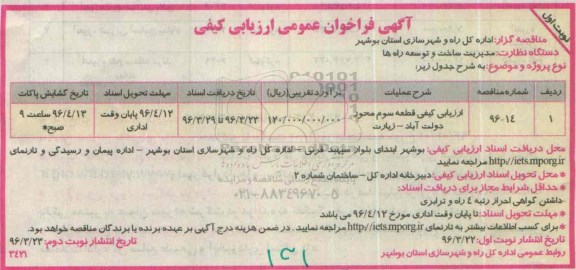 نوبت اول
آگهی فراخوان عمومی ارزیابی کیفی
مناقصه گزار: اداره کل راه و شهرسازی استان بوشهر
دستگاه نظارت: مدیریت ساخت و توسعه راه ها
نوع پروژه و موضوع: به شرح جدول زیر:
ردیف شماره مناقصه شرح عملیات برآورد تقریبی (ریال) تاریخ دریافت اسناد مهلت تحویل اسناد تاریخ گشایش پاکات
۱ ۹۶-۱۴ ارزیابی کیفی قطعه سوم محور دولت آباد – زیارت ۱۲۰/۰۰۰/۰۰۰/۰۰۰ ۹۶/۳/۲۳ تا ۹۶/۳/۲۹ ۹۶/۴/۱۲ پایان وقت اداری ۹۶/۴/۱۳ ساعت ۹ صبح*
محل دریافت اسناد ارزیابی کیفی: بوشهر ابتدای بلوار سپهبد قرنی – اداره کل راه و شهرسازی استان بوشهر – اداره پیمان و رسیدگی و تارنمای
http://iets.mporg.ir مراجعه نمایید
* محل تحویل اسناد ارزیابی کیفی: دبیرخانه اداره کل – ساختمان شماره ۲
* حداقل شرایط مجاز برای دریافت اسناد:
-داشتن گواهی احراز رتبه ۴ راه و ترابری
* مهلت تحویل اسناد: تا پایان وقت اداری مورخ ۹۶/۴/۱۲ می باشد
* برای کسب اطلاعات بیشتر به تارنمای http://iets.mporg.ir مراجعه نمایید. در ضمن هزینه درج آگهی بر عهده برنده یا برندگان مناقصه خواهد بود.
تاریخ انتشار نوبت اول: ۹۶/۳/۲۲ تاریخ انتشار نوبت دوم: ۹۶/۳/۲۳
روابط عمومی اداره کل راه و شهرسازی استان بوشهر ۳۴۲۱
۰۲۱-۸۸۳۴۹۶۷۰-۵